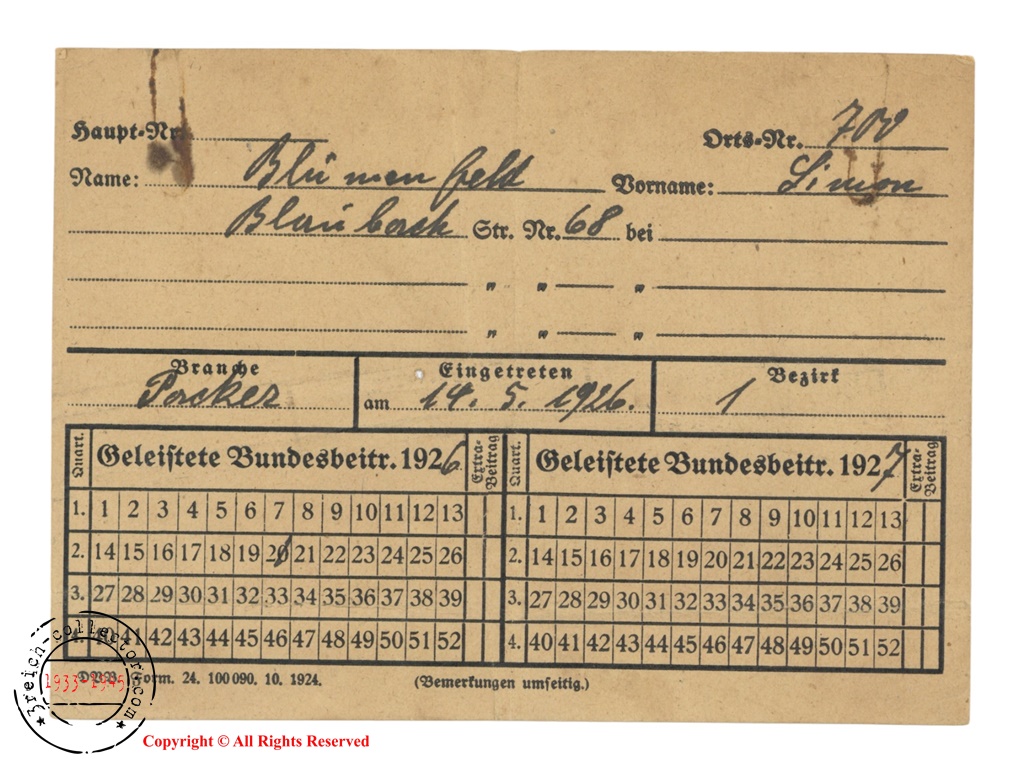 Haupt-Nr. Orts-Nr. 700
Name: Blumenfeld Vorname: Simon
Blaubach Str. Nr. 68 bei
" " "
" " "
Branche Eingetreten Bezirk
Packer am 14. 5. 1926. 1
Quart. Geleistete Bundesbeitr. 1926 Extra-Beitrag Quart. Geleistete Bundesbeitr. 1927 Extra-Beitrag
1. 1 2 3 4 5 6 7 8 9 10 11 12 13 1. 1 2 3 4 5 6 7 8 9 10 11 12 13
2. 14 15 16 17 18 19 20 21 22 23 24 25 26 2. 14 15 16 17 18 19 20 21 22 23 24 25 26
3. 27 28 29 30 31 32 33 34 35 36 37 38 39 3. 27 28 29 30 31 32 33 34 35 36 37 38 39
41 42 43 44 45 46 47 48 49 50 51 52 4. 40 41 42 43 44 45 46 47 48 49 50 51 52
Form. 24. 100 090. 10. 1924. (Bemerkungen umseitig.)
3reich-collector.com
1933-1945
Copyright © All Rights Reserved